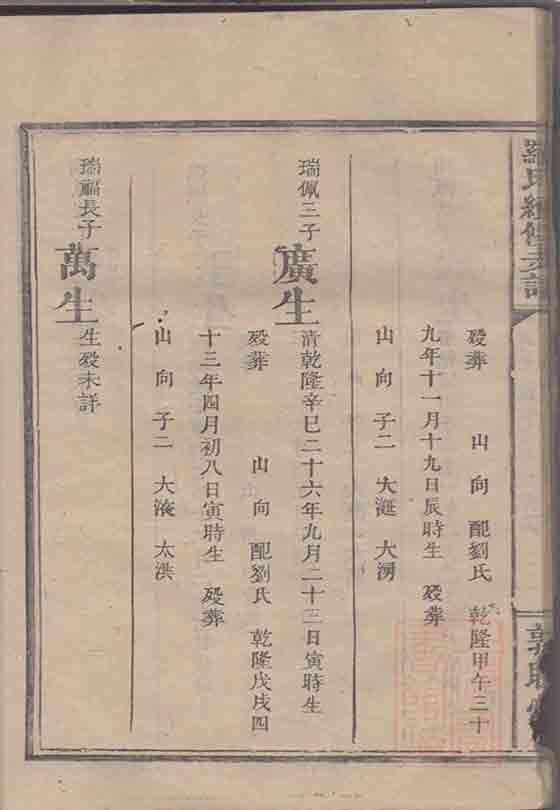 羅氏經修支譜
歿葬 山 向 配劉氏 乾隆甲午三十
九年十一月十九日辰時生 歿葬
山 向 子二 大漨 大湧
瑞佩三子
廣生
清乾隆辛巳二十六年九月二十三日寅時生
歿葬 山 向 配劉氏 乾隆戊戌四
十三年四月初八日寅時生 歿葬
山 向 子二 大 太洪
瑞福長子
萬生
生歿未詳